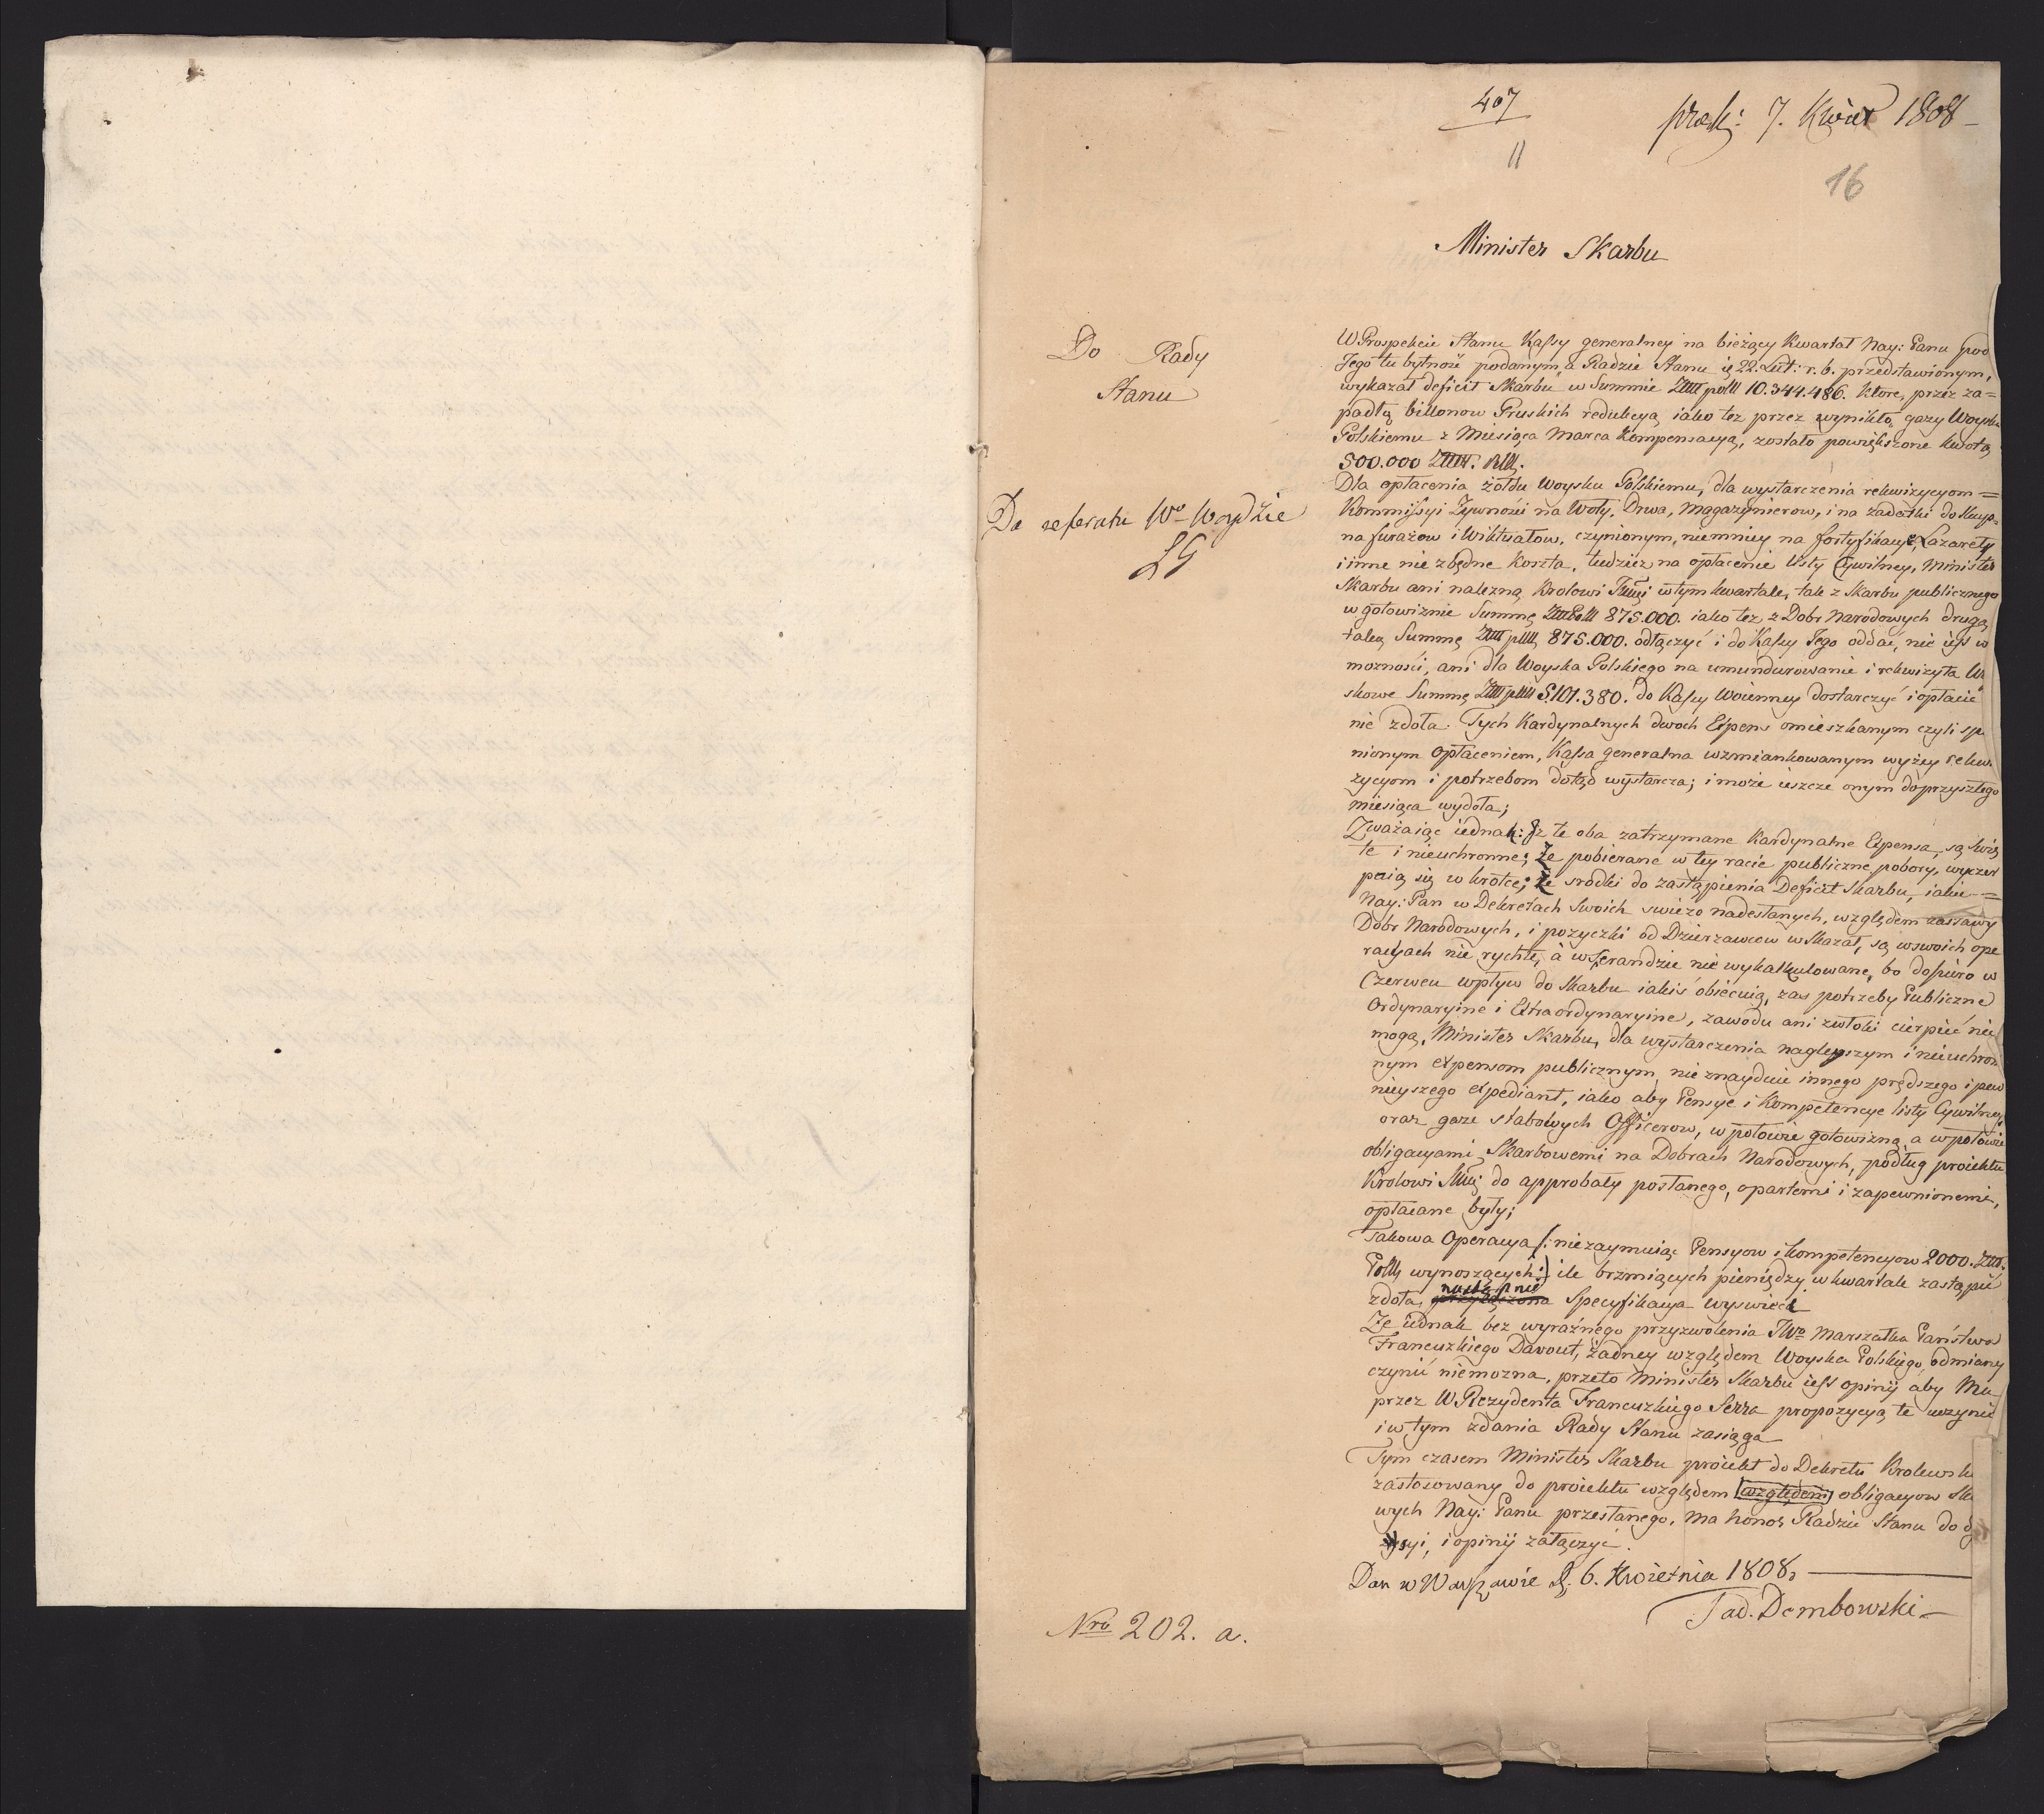 407
11
praes: 7. Kwiet 1808
16
Minister Skarbu
Do Rady
Stanu
Do referatu Wo Woydzie
LG
W Prospekcie Stanu Kassy generalney na bieżący Kwartał Nay: Panu pod
Jego tu bytność podanym, a Radzie Stanu 22. Lut: r. b. przedstawionym,
wykazał deficit Skarbu w Summie 10.344.486. ktore, przez za=
padłą billonow Pruskich redukcyą, iako też przez wynikłą gazy Woysku
Polskiemu z Miesiąca Marca Kompensacyą, zostało powiększone kwotą
500.000
Dla opłacenia żołdu Woysku Polskiemu, dla wystarczenia rekwizycyom=
Kommissyi Zywnosci na Woły, Drwa, Magazynierow, i na zadatki do skup=
na furażow i Wiktuałow, czynionym, niemniey na fortyfikacye, Lazarety
i inne nie zbędne Koszta, tudzież na opłacenie listy Cywilney, Minister
Skarbu ani należną Krolowi w tym kwartale, tak z Skarbu publicznego
w gotowiznie Summę 875.000. iako też z Dobr Narodowych drugą
taką Summę 875.000. odłączyć i do Kassy Jego oddać, nie iest w
możnosci, ani dla Woyska Polskiego na umundurowanie i rekwizyta
skowe Summę 5.101.380. do Kassy Woienney dostarczyć i opłacić
nie zdoła. Tych Kardynalnych dwoch Expens omieszkanym czyli
nionym opłaceniem, Kassa generalna wzmiankowanym wyżey rekwi
zycyom i potrzebom dotąd wystarcza; i może ieszcze onym do przyszłego
miesiąca wydoła;
Zważaiąc iednak: Iż te oba zatrzymane Kardynalne Expensa, są Swię
te i nieuchronne; że pobierane w tey racie publiczne pobory, wyczer
paią się w krotce; że srodki do zastąpienia Deficit Skarbu, iakie=
Nay: Pan w Dekretach Swoich swieżo nadesłanych, względem zastawy
Dobr Narodowych, i pożyczki od Dzierzawcow wskazał, są w swoich ope
racyach nie rychłe, a w Sperandzie nie wykalkulowane, bo dopiero w
Czerwcu wpływ do Skarbu iakiś obiecuią, zas potrzeby Publiczne
Ordynaryine i Extraordynaryine, zawodu ani zwłoki cierpieć nie
mogą, Minister Skarbu, dla wystarczenia nagleyszym i nieuchron
nym expensom publicznym nie znayduie innego prędszego i pew
nieyszego expediant, iako aby Pensye i Kompetencye listy Cywilney,
oraz gaze sztabowych Officerow, w połowie gotowizną, a w połowie
obligacyami Skarbowemi na Dobrach Narodowych, podług proiektu
Krolowi do approbaty posłanego, opartemi i zapewnionemi,
opłacane były;
Takowa Operacya /: nie zaymuiąc Pensyow i Kompetencyow 2000.
wynoszących :/ ile brzmiących pieniędzy w kwartale zastąpić
zdoła, następnie Specyfikacya wyswieca
Ze iednak bez wyraźnego przyzwolenia JWo Marszałka Państwa
Francuzkiego Davout, żadney względem Woyska Polskiego odmiany
czynić niemożna, przeto Minister Skarbu iest opinij aby Mu
przez W Rezydenta Francuzkiego Serra propozycyą te uczynić
i w tym zdania Rady Stanu zasiąga
Tym czasem Minister Skarbu proiekt do Dekretu Krolewsk
zastosowany do proiektu względem względem obligacyow Ska
wych Nay: Panu przesłanego, ma honor Radzie Stanu do
zyi, i opinij załączyć.
Dan w Warszawie d. 6. Kwietnia 1808.
Tad. Dembowski
Nro 202. a.